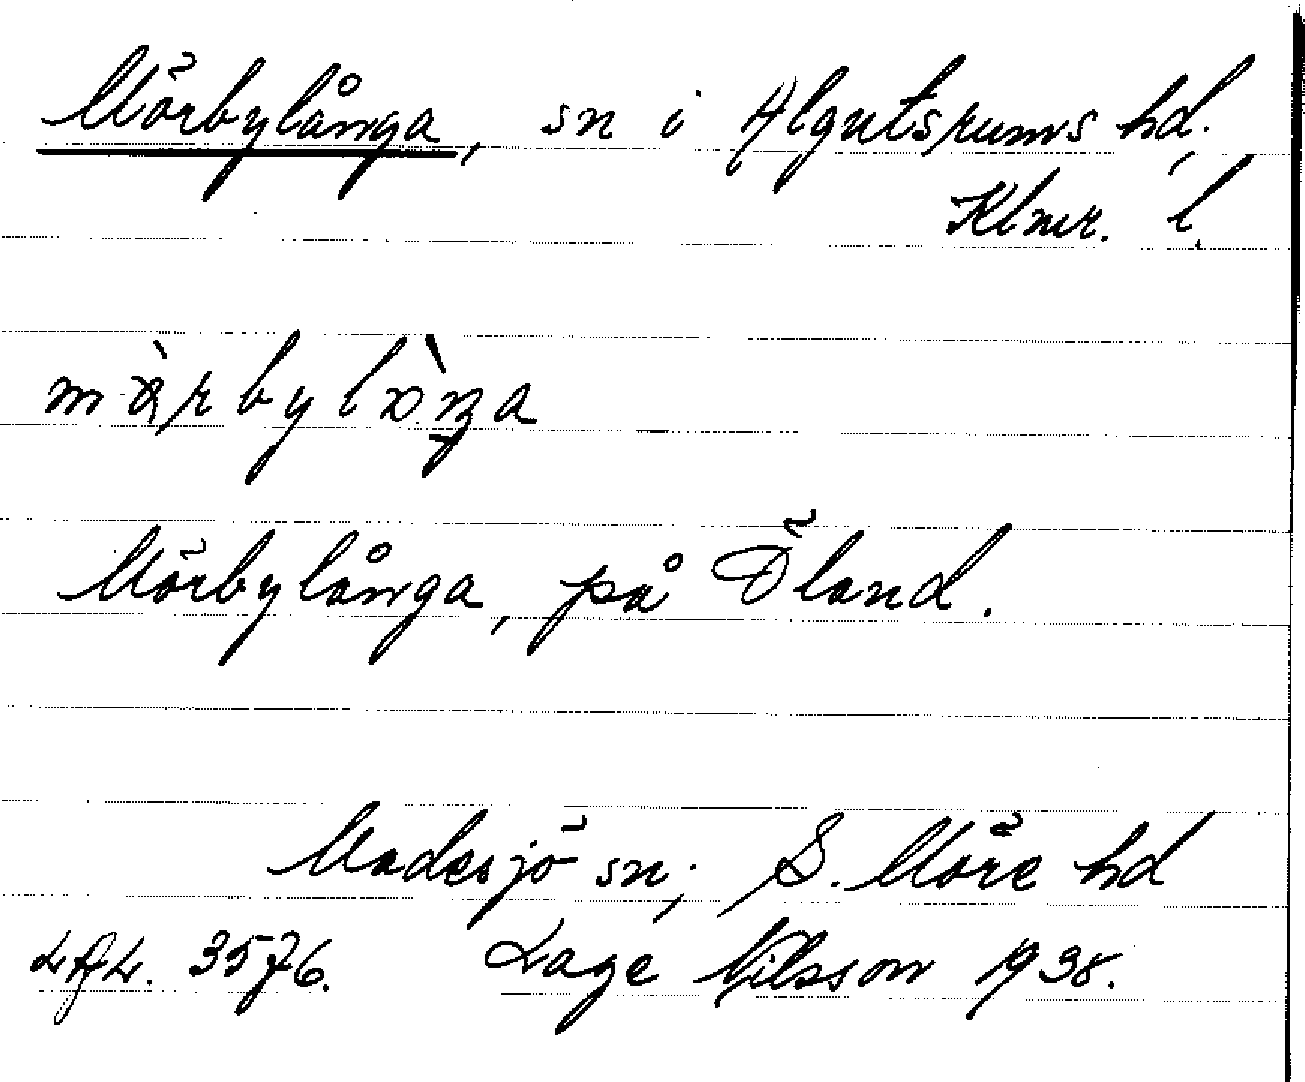 Mörbylånga, sn i Algutsrums hd,
Klmr. l.
mɵ̀rbylɔ̀ŋa
Mörbylånga, på Öland.
Madesjö sn; S. Möre hd
3576. Lage Nilsson 1938.